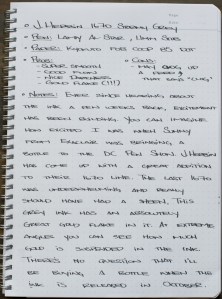 • J. Herbin 1670 Stormy Grey
• Pen: Lamy Al-Star, 1.1mm Stub
• Paper: Kyokuto for Coop B5 Dot
• Pros:
- Super Smooth
- Good Flow
- Nice Darkness
- Gold Flake (!!!)
• Cons:
- May clog up
a feed
that was "clog"
• Notes: Ever since hearing about
the ink a few weeks back, excitement
has been building. You can imagine
how excited I was when Sunny
from Exaclair was bringing a
bottle to the DC Pen Show. J. Herbin
has come up with a great addition
to their 1670 line. The last 1670
was underwhelming and really
should have had a sheen. This
grey ink has an absolutely
great gold flake in it. At extreme
angles you can see how much
gold is suspended in the ink.
There's no question that I'll
be buying a bottle when the
ink is released in October.